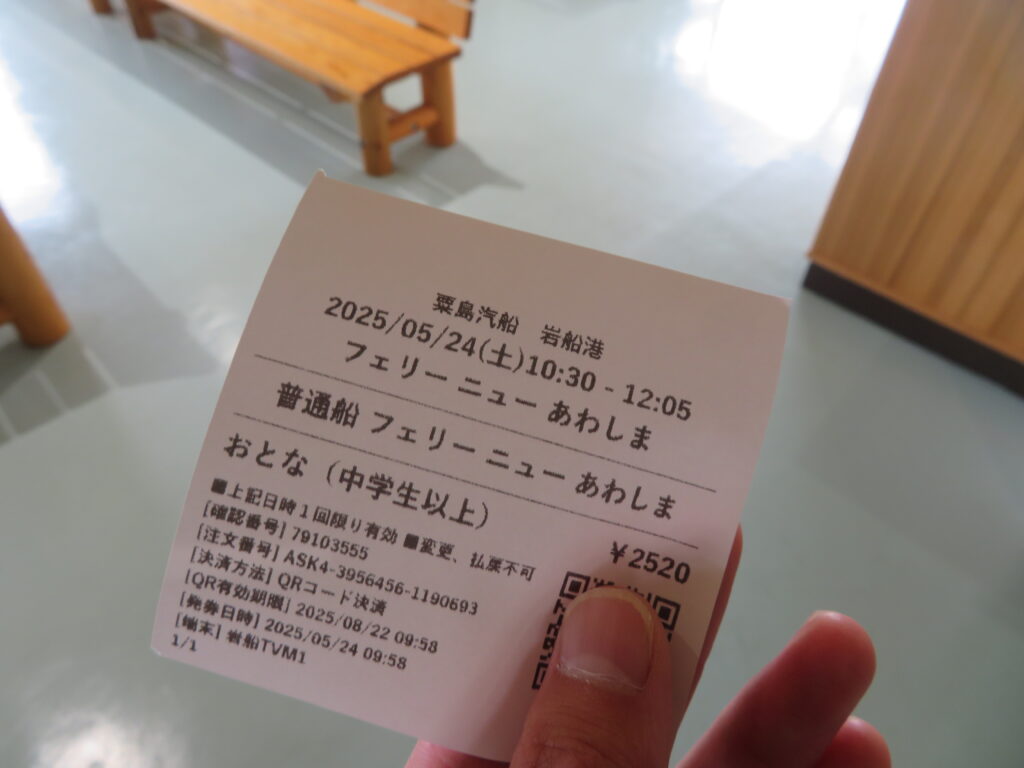 粟島汽船 岩船港
2025/05/24(土)10:30 - 12:05
フェリー ニュー あわしま
普通船 フェリー ニュー あわしま
おとな（中学生以上）
¥2520
■上記日時1回限り有効 ■変更、払戻不可
[確認番号] 79103555
[注文番号] ASK4-3956456-1190693
[決済方法] QRコード決済
[QR有効期限] 2025/08/22 09:58
[発券日時] 2025/05/24 09:58
[端末] 岩船TVM1
1/1